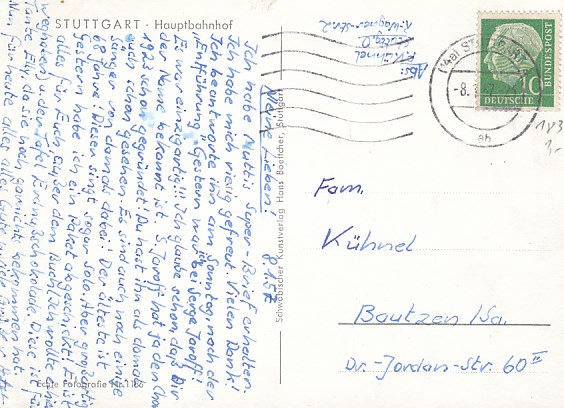 STUTTGART · Hauptbahnhof
Abs:
K.-Wagner-Str. 2
(14a) STUTTGART
-8.
ab
DEUTSCHE
BUNDESPOST
10
183
Fam.
Kühnel
Bautzen/Sa.
Dr.-Jordan-Str. 60 II
Schwäbischer Kunstverlag Hans Boettcher, Stuttgart
Echte Fotografie Nr. 1186
8.1.57
Meine Lieben!
Ich habe Muttis Super-Brief erhalten.
Ich habe mich riesig gefreut. Vielen Dank!
Ich beantworte ihn am Sonntag, nach der
"Entführung". Gestern war ich bei Serge Jaroff!
Es war einzigartig!!! Ich glaube schon, daß Dir
der Name bekannt ist. S. Jaroff hat ja den Chor
1923 schon gegründet! Du hast ihn als damals
auch schon gesehen. Es sind auch noch einige
Sänger von damals dabei! Der älteste ist
68 Jahre! Dieser singt sogar Solo. Aber großartig!
Gestern habe ich ein Paket abgeschickt. Es ist
alles für Euch außer dem Buch (ich wollte nicht
wegholen) und der Tafel Schokolade. Diese ist für
Tante Elly, da sie noch garnichts bekommen hat.
Nun für heute alles alles Gute u. viele Grüße